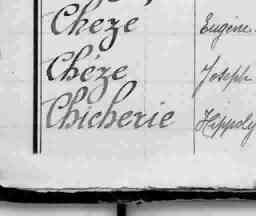 Cheze Eugène
Chéze Joseph
Chicherie Hippoly